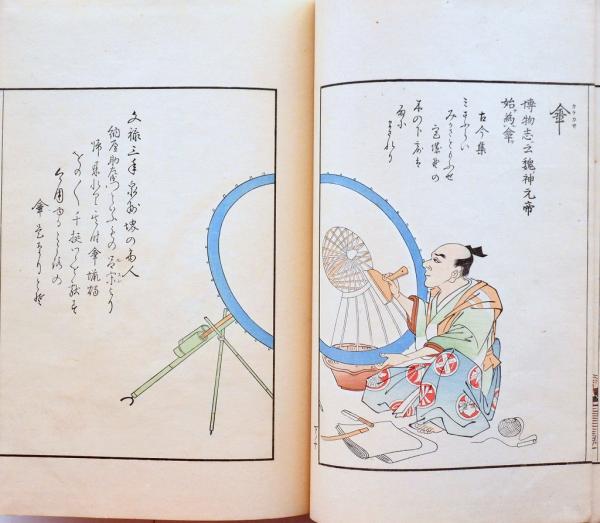 傘
カラカサ
博物志云魏神元帝
始為傘
古今集
みさふらい
みかさとまふせ
宮城野の
木の下露は
雨に
まされり
文禄三年泉州堺の商人
納屋助左衛門といふもの呂宋より
傘蝋燭
千挺つゝを献す
今用ゆるところの
傘是なりとそ